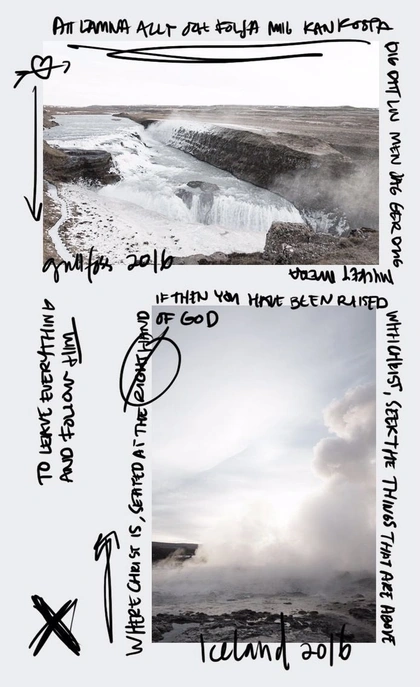 ATT LÄMNA ALLT OCH FÖLJA MIG KAN KOSTA
DIG DITT LIV MEN JAG GER DIG
MYCKET MERA
gullfoss 2016
TO LEAVE EVERYTHING
AND FOLLOW HIM
IF THEN YOU HAVE BEEN RAISED
WITH CHRIST, SEEK THE THINGS THAT ARE ABOVE
WHERE CHRIST IS, SEATED AT THE RIGHT HAND
OF GOD
Iceland 2016